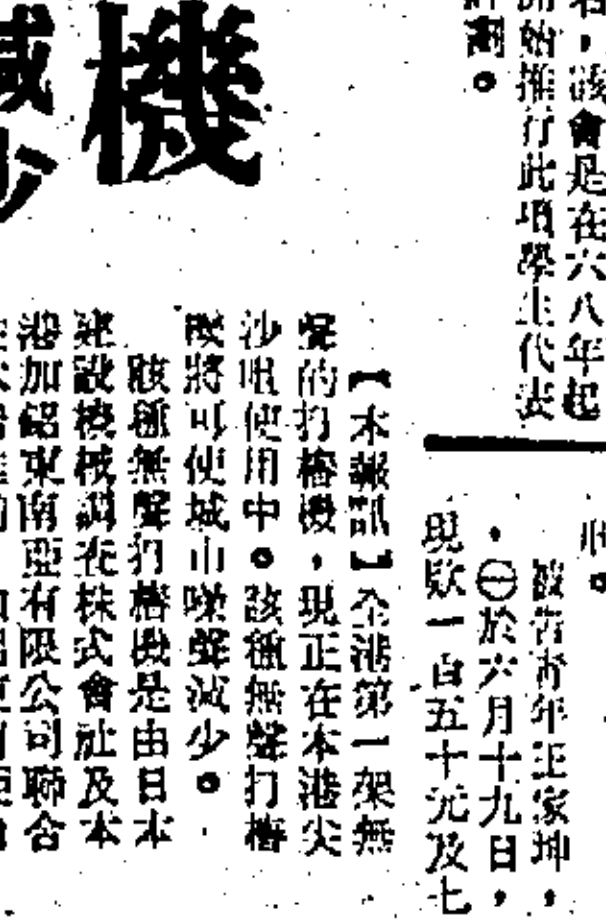 石,該會是在六八年起
開始推行此項學生代表
計劃。
被告青年王家坤,
,㊀於六月十九日,
現欵一百五十元及七
機
減少
【本報訊】全港第一架無
聲的打樁機,現正在本港尖
沙咀使用中。該種無聲打樁
機將可使城市噪聲減少。
該種無聲打樁機是由日本
建設機械調査株式會社及本
港加鋁東南亞有限公司聯合